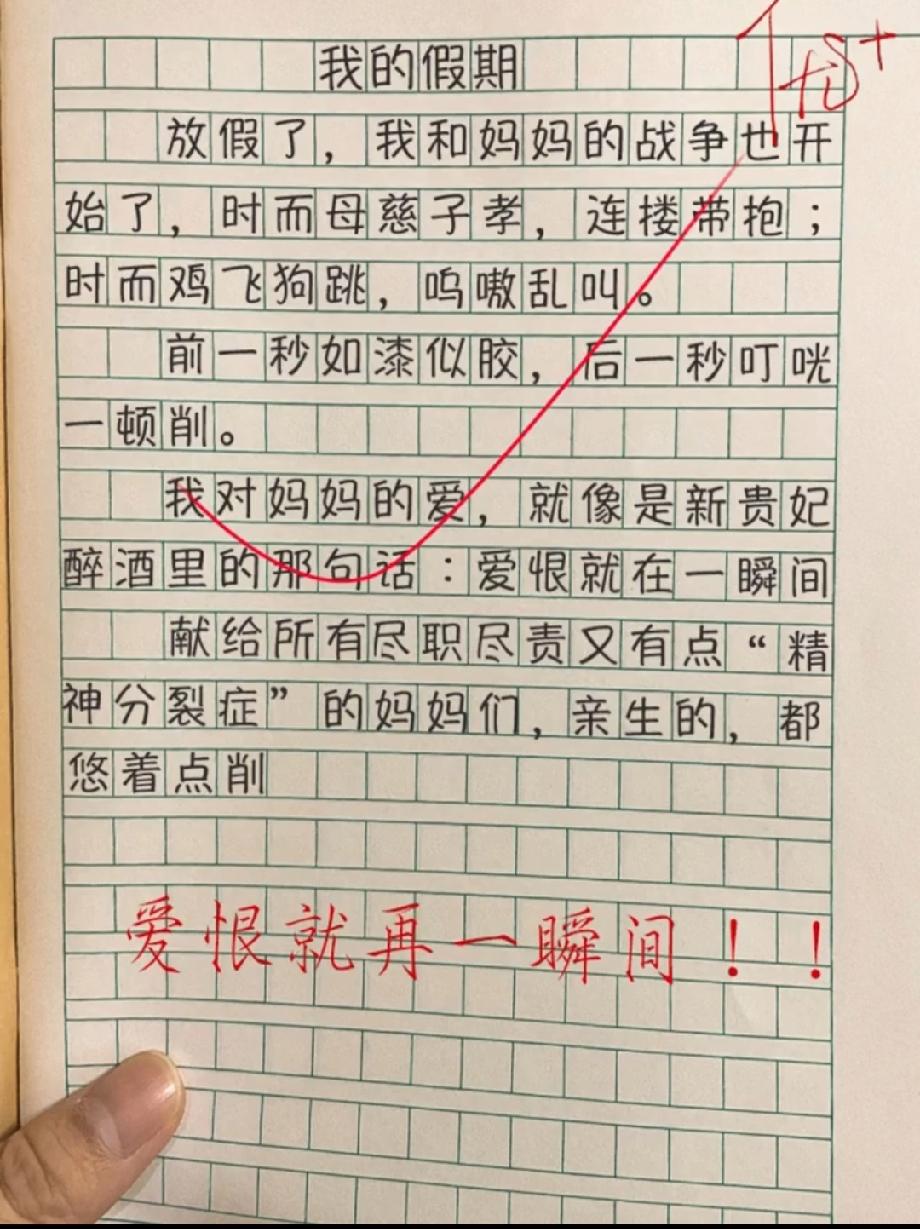 我的假期
优+
放假了，我和妈妈的战争也开
始了，时而母慈子孝，连搂带抱；
时而鸡飞狗跳，呜嗷乱叫。
前一秒如漆似胶，后一秒叮咣
一顿削。
我对妈妈的爱，就像是新贵妃
醉酒里的那句话：爱恨就在一瞬间
献给所有尽职尽责又有点“精
神分裂症”的妈妈们，亲生的，都
悠着点削
爱恨就再一瞬间！！